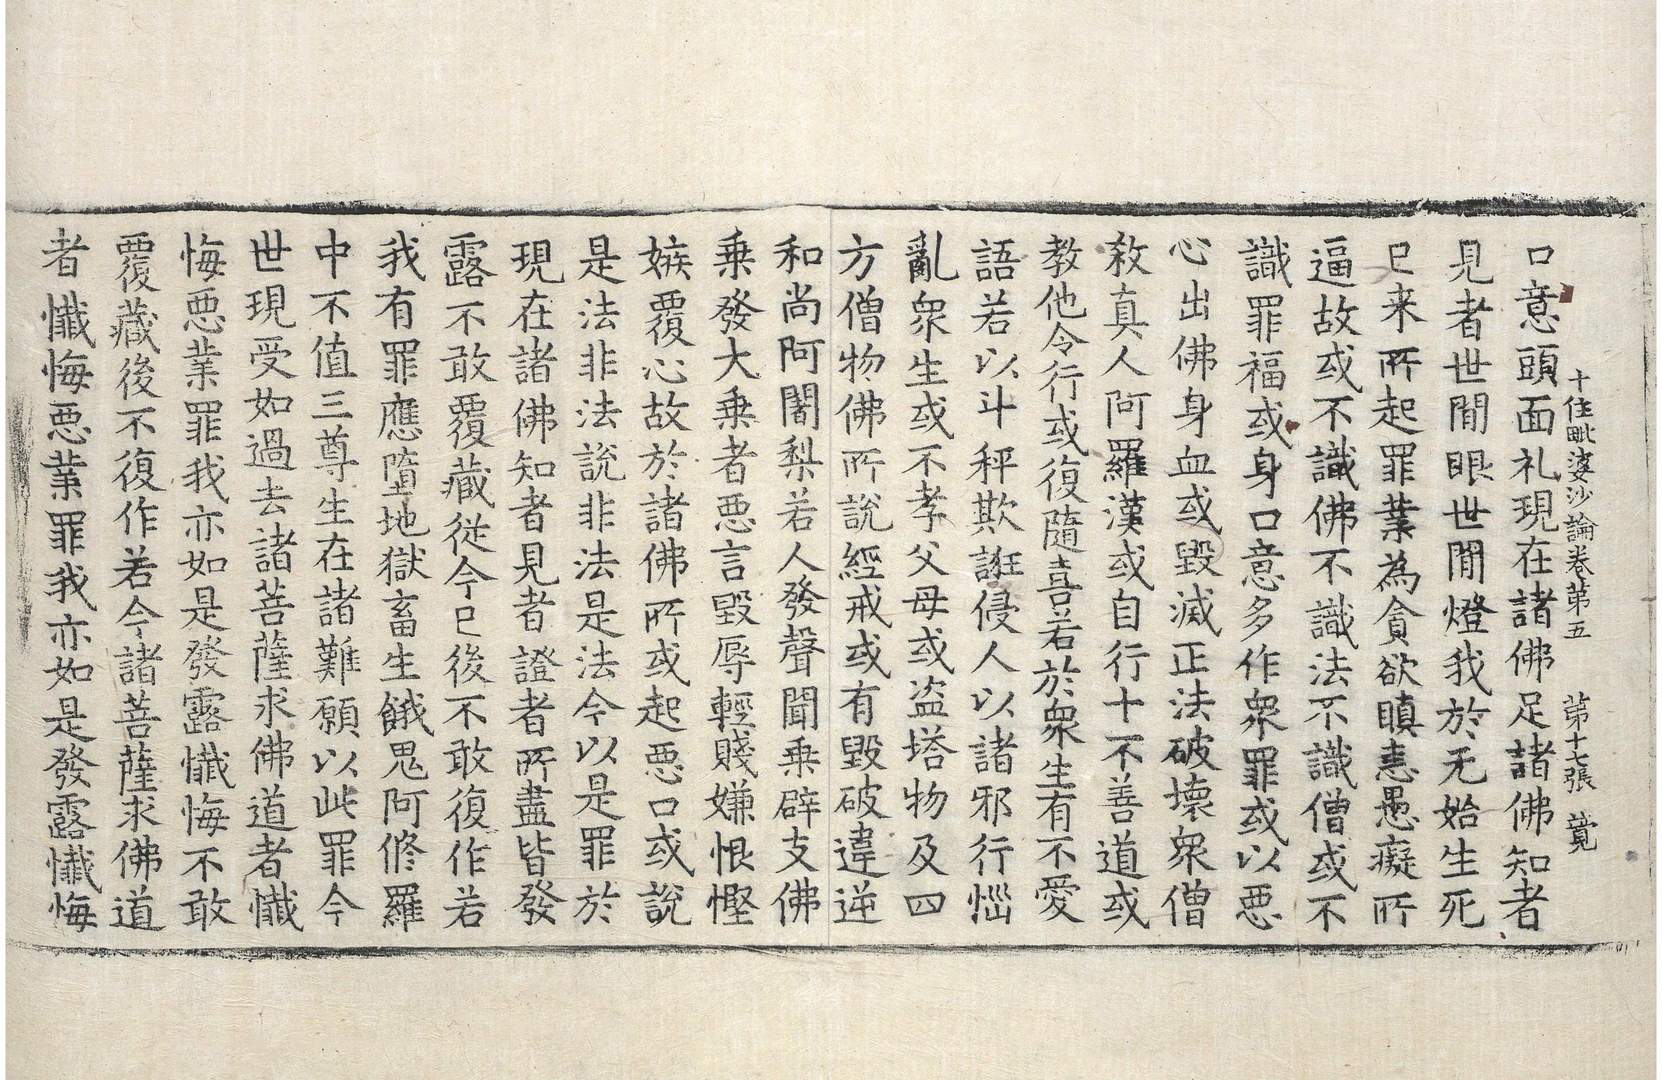 十住毗婆沙論卷苐五 苐十七張 覺
口意頭面礼現在諸佛足諸佛知者
見者世閒眼世閒燈我於无始生死
已来所起罪業為貪欲瞋恚愚癡所
逼故或不識佛不識法不識僧或不
識罪福或身口意多作衆罪或以惡
心出佛身血或毀滅正法破壞衆僧
敎真人阿羅漢或自行十不善道或
教他令行或復隨喜若於衆生有不愛
語若以斗秤欺誑侵人以諸邪行惱
亂衆生或不孝父母或盜塔物及四
方僧物佛所說經戒或有毀破違逆
和尚阿闍梨若人發聲聞乗辟支佛
乗發大乗者惡言毀辱輕賤嫌恨慳
嫉覆心故於諸佛所或起惡口或說
是法非法說非法是法今以是罪於
現在諸佛知者見者證者所盡皆發
露不敢覆藏從今已後不敢復作若
我有罪應墮地獄畜生餓鬼阿修羅
中不值三尊生在諸難願以此罪今
世現受如過去諸菩薩求佛道者懺
悔惡業罪我亦如是發露懺悔不敢
覆藏後不復作若今諸菩薩求佛道
者懺悔惡業罪我亦如是發露懺悔